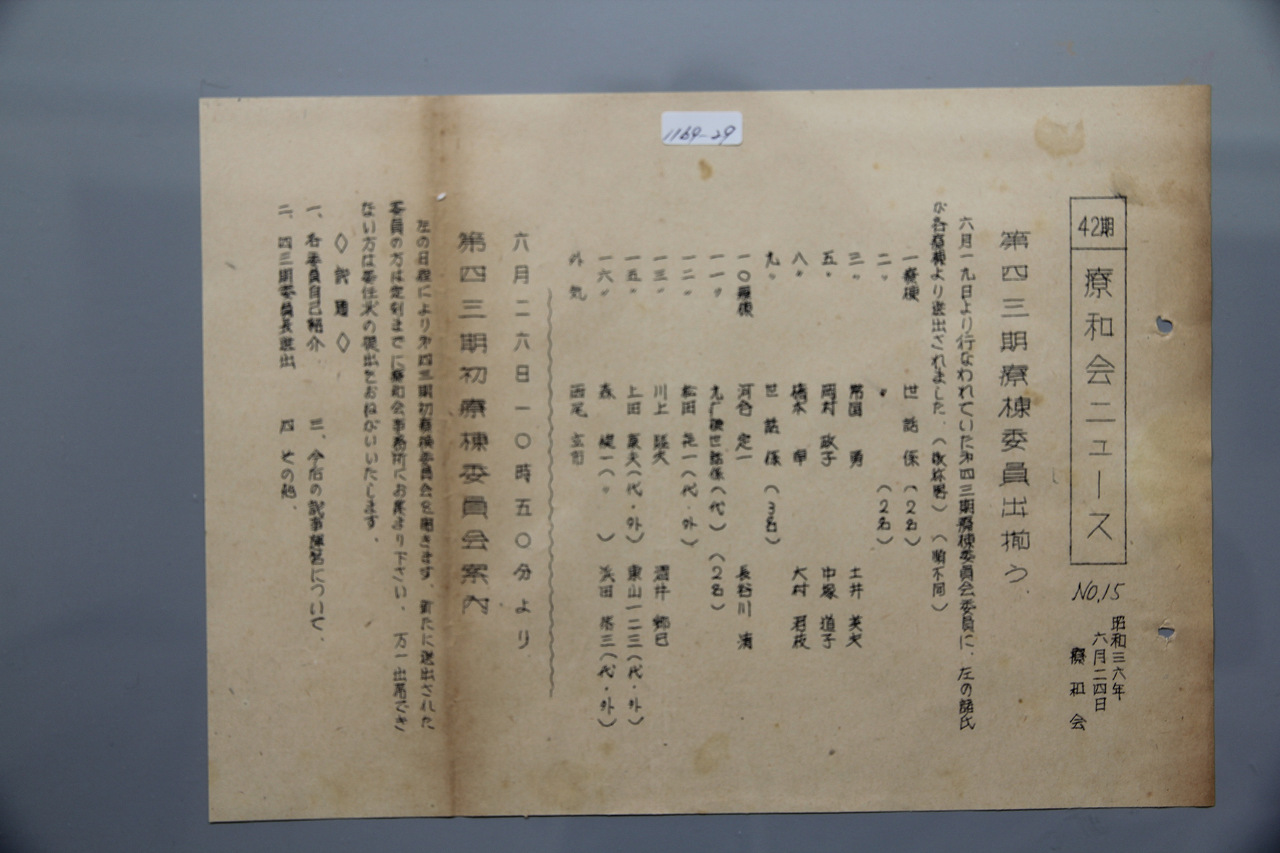 1169-29
42期
療和会ニュース
No.15
昭和三六年
六月二四日
療和会
第四三期寮棟委員出揃う
六月一九日より行なわれていた才四三期寮棟委員会委員に、左の諸氏
が各寮棟より選出されました。(敬称略)(順不同)
一寮棟 世話係(2名)
二〃 〃(2名)
三〃 常国 勇 土井 英夫
五〃 岡村 政子 中塚 道子
八〃 橋本 大村 君枝
九〃 世話係(3名)
一〇寮棟 河合 定一 長谷川 清
一一〃 世話係(代)(2名)
一二〃 松田 一(代・外)
一三〃 川上 酒井
一五〃 上田 夫(代・外) 東山 一二三(代・外)
一六〃 森 一(〃) 浜田 三(代・外)
外気 西尾
六月二六日一〇時五〇分より
第四三期初寮棟委員会案内
左の日程により才四三期初寮棟委員会を開きます。新たに選出された
委員の方は定刻までに療和会事務所にお集より下さい、万一出席でき
ない方は委任状の提出をおねがいいたします。
◇議題◇
一、各委員自己紹介
二、四三期委員長選出
三、今后の議事運営について、
四 その他、